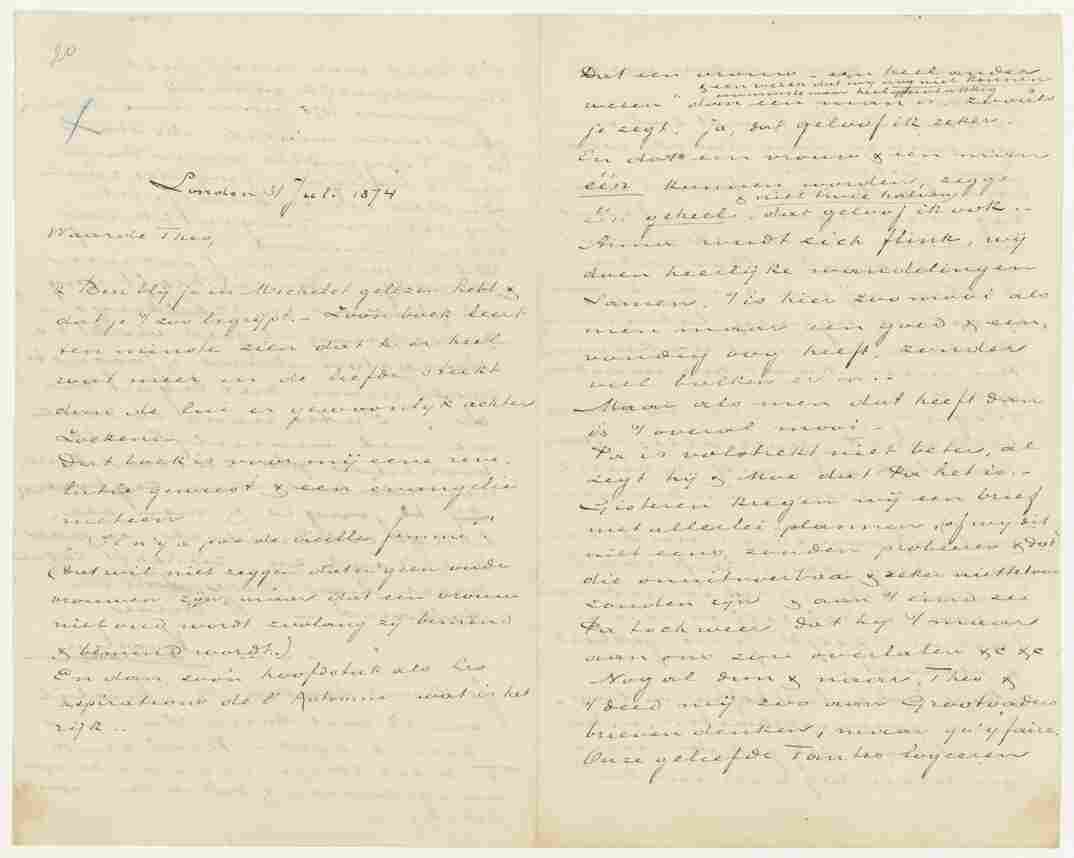 20
London 31 Juli 1874
Waarde Theo,
'k Ben blij je in Michelet gelezen hebt &
dat je 't zoo begrijpt. – Zoo'n boek leert
ten minste zien dat er heel
wat meer in de liefde steekt
dan de lui er gewoonlijk achter
zoeken.
Dat boek is voor mij eene reve-
latie geweest & een evangelie
meteen
"Il n'y a pas de vieille femme"!
(Dat wil niet zeggen dat er geen oude
vrouwen zijn, maar dat een vrouw
niet oud wordt zoolang zij bemind
& bemind wordt.)
En dan zoo'n hoofdstuk als les
aspirations de l'Automne wat is het
rijk..
Dat een vrouw een heel ander
& een wezen dat wij nog niet kennen
wezen is dan een man is, zooals
je zegt. Ja, dat geloof ik zeker.
En dat een vrouw & een man
één kunnen worden, zegge
& niet twee halven
één geheel, dat geloof ik ook.
Anna houdt zich flink, wij
doen heerlijke wandelingen
samen. 't is hier zoo mooi als
men maar een goed & een-
voudig oog heeft, zonder
veel balken er in..
Maar als men dat heeft dan
is 't overal mooi –
Pa is volstrekt niet beter, al
zegt hij & Moe dat Pa het is. –
Gisteren kregen wij een brief
met allerlei plannen, (of wij dit
niet eens zouden probeeren & dat
die onuitvoerbaar & zeker nutteloos
zouden zijn & aan 't eind zei
Pa toch weer dat hij 't maar
aan ons zou overlaten &c &c
Nogal dun & naar, Theo &
't deed mij zoo aan Grootvaders
brieven denken, maar qu'y faire.
Onze geliefde Tantes logeeren